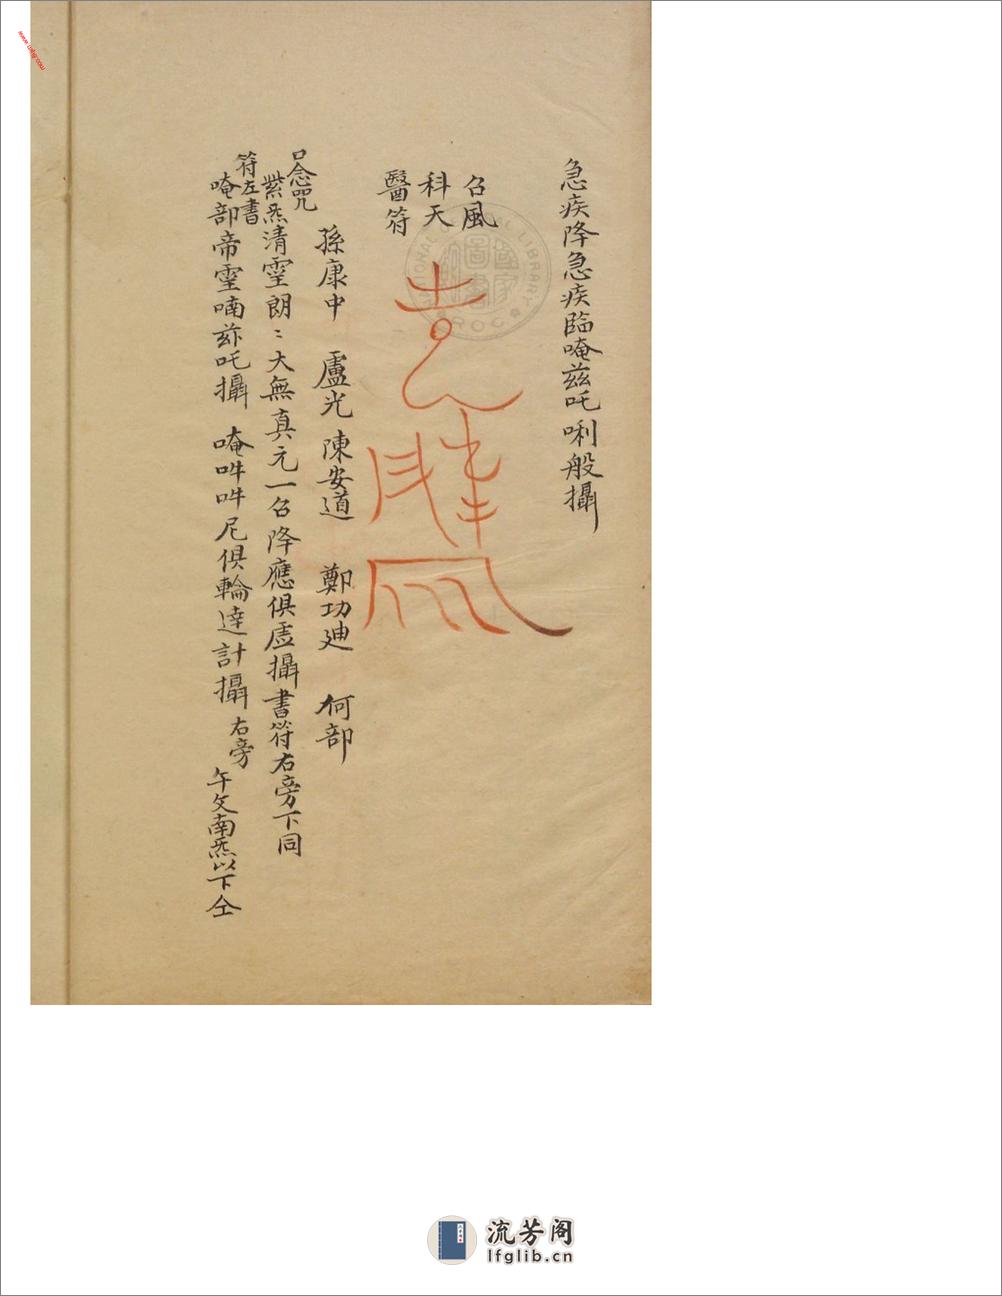 急疾降急疾臨唵茲吒唎般攝
召風
科天
醫符
孫康中 盧光 陳安道 鄭功廸 何部
口念咒
紫炁清霊朗〻大無真元一召降應俱虗攝書符右旁下同
符左書
唵部帝霊喃茲吒攝 唵吽吽尼俱輪達計攝 右旁
午文南炁以下仝
NATIONAL LIBRARY
ROC
國家
圖書
www.lfglib.com
流芳阁
lfglib.cn